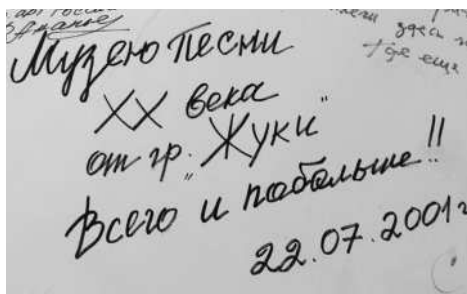 Музею песни
XX века
от гр. „Жуки"
Всего и побольше!!
22.07.2001г
здесь
где еще